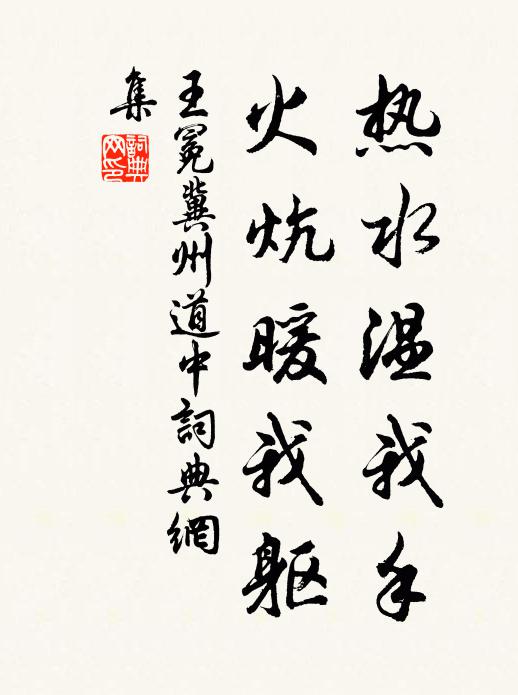 热水温我手
火炕暖我躯
王冕冀州道中詞典網
集
詞典
网印